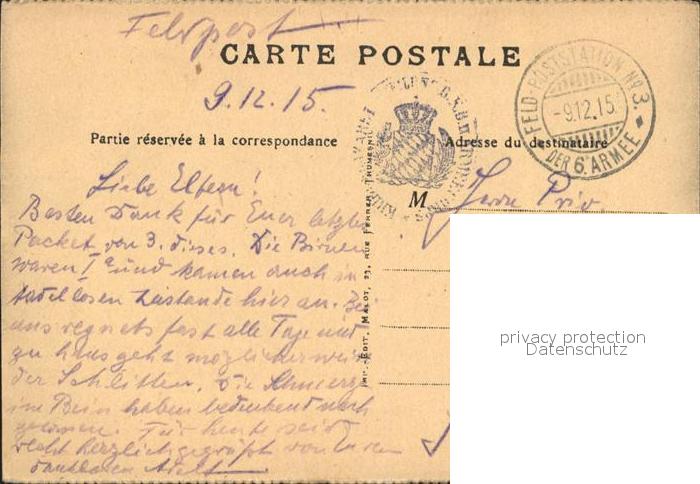 Feldpost
CARTE POSTALE
9.12.15.
FELD-POSTSTATION No 3.
-9.12.15
DER 6. ARMEE
Partie réservée à la correspondance
Adresse du destinataire
M
Herrn Priv
Liebe Eltern!
Besten Dank für Euer letztes
Packet von 3. dieses. Die Birnen
waren Ia und kamen auch in
tadellosen Zustande hier an. Bei
uns regnets fast alle Tage und
zu haus geht möglicherweis
der Schlitten. Die Schmerzen
im Bein haben bedeutend nach
Für heute seid
recht herzlich gegrüßt von Euren
dankbaren Adolf
IMP.-EDIT. MALOT, 23, RUE FERRER, THUMESNIL
privacy protection
Datenschutz